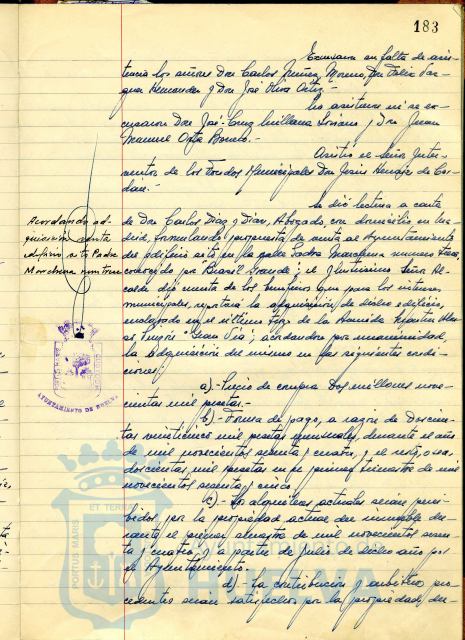 183
Excusaron su falta de asis-
tencia los señores Don Carlos Núñez Moreno, Don Félix Vaz-
quez Hernández y Don José Oliva Ortiz.-
No asistieron ni se ex-
cusaron Don José-Cruz Orihuela Soriano y Don Juan
Manuel Ortiz Borrero.-
Asistió el señor Inter-
ventor de los Fondos Municipales Don Jesús Hernáez de Cer-
dán.-
Se dió lectura a carta
de Don Carlos Díaz y Díaz, Abogado, con domicilio en Ma-
drid, formulando propuesta de venta al Ayuntamiento
del edificio sito en la calle Padre Marchena número tres,
conocido por Brasil Grande; el Ilustrísimo Señor Al-
calde dió cuenta de los beneficios que para los intereses
municipales, reportará la adquisición de dicho edificio,
enclavado en el último trozo de la Avenida
"Gran Vía"; acordándose por unanimidad,
la adquisición del mismo en las siguientes condi-
ciones:
a).- Precio de compra dos millones nove-
cientas mil pesetas.-
b).- Forma de pago, a razón de doscien-
tas veinticinco mil pesetas mensuales, durante el año
de mil novecientos sesenta y cuatro, y el resto, o sea,
doscientas mil pesetas en el primer trimestre de mil
novecientos sesenta y cinco.
c).- Los alquileres actuales serán perci-
bidos por la propiedad actual del inmueble du-
rante el primer semestre de mil novecientos sesen-
ta y cuatro, y a partir de Julio de dicho año por
el Ayuntamiento.-
d).- La contribución y arbitrios pro-
cedentes serán satisfechos por la propiedad, du-
Acordando ad-
quisición venta
edificio sito Padre
Marchena núm. tres
AYUNTAMIENTO DE HUELVA
PORTUS MARIS
ET TERRAE
HUELVA